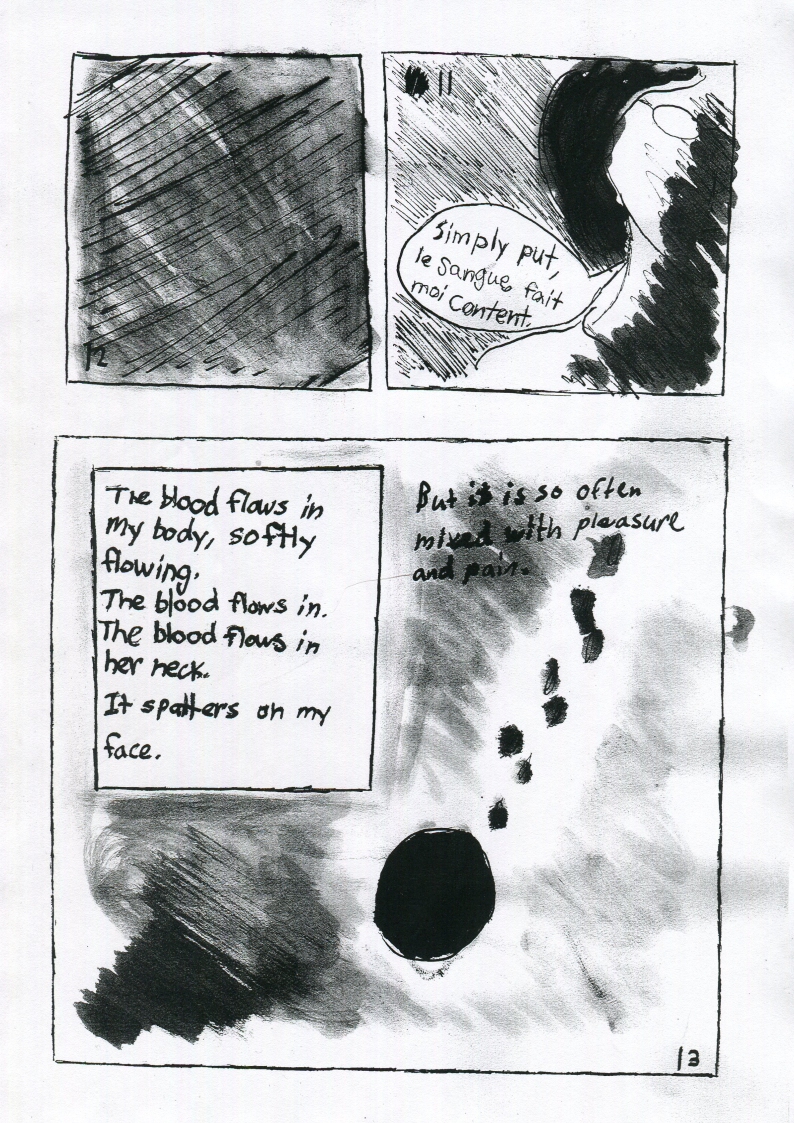 12
11
Simply put,
le sangue fait
moi content.
The blood flows in
my body, softly
flowing.
The blood flows in.
The blood flows in
her neck.
It spatters on my
face.
But it is so often
mixed with pleasure
and pain.
13